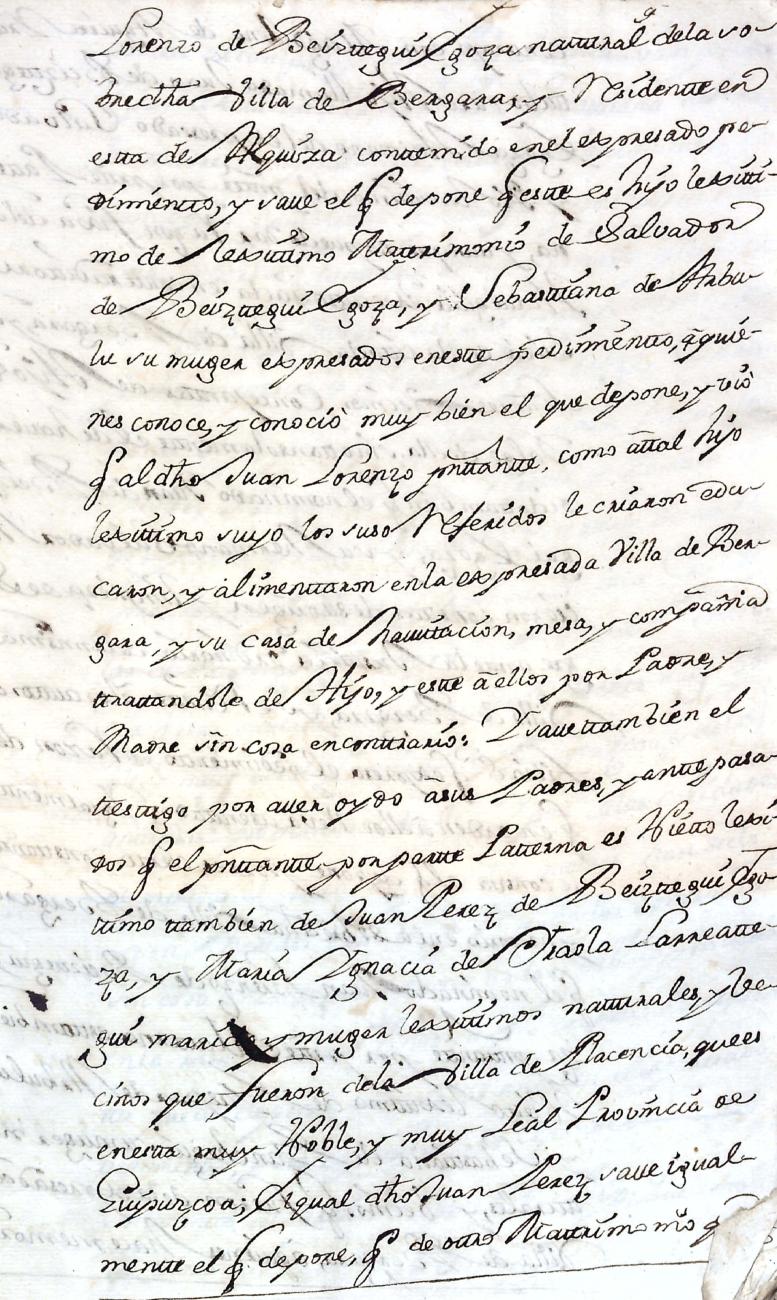 Lorenzo de Beiztegui Egoza natural de la so-
bredha Villa de Bergara, y Residente en
esta de Alquiza contenido en el expresado pe-
dimento, y save el q depone q este es hijo lexiti-
mo de lexitimo Matrimonio de Salvador
de Beiztegui Egoza, y Sebastiana de Arbu-
lu su muger expresados en este pedimento, a quie-
nes conoce, y conociò muy bien el que depone, y viò
q al dho Juan Lorenzo pntante, como a tal hijo
lexitimo suyo los suso Referidos le criaron edu-
caron, y alimentaron en la expresada Villa de Ber-
gara, y su casa de havitacion, mesa, y compañia
tratandole de Hijo, y este a ellos por Padre, y
Madre sin cosa en contrario: Y save tambien el
testigo por aver oydo a sus Padres, y antepasa-
dos q el pntante por parte Paterna es Nieto lexi-
timo tambien de Juan Perez de Beiztegui Ego-
za, y Maria Ygnacia de Olaola Larreate-
gui marido y muger lexitimos naturales, y Ve-
cinos que fueron dela Villa de Placencia, que es
en esta muy Noble, y muy Leal Provincia de
Guipuzcoa; El qual dho Juan Perez save igual-
mente el q depone, q de otro Matrimonio q